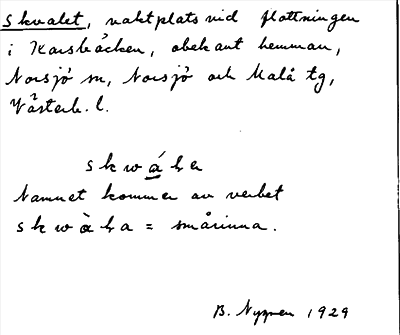 Skvalet, vaktplats vid flottningen
i Korsbäcken, obekant hemman,
Norsjö sn, Norsjö och Malå tg,
Västerb. l.
skwálen
Namnet kommer av verbet
skwàla = smårinna.
B. Nygren 1929